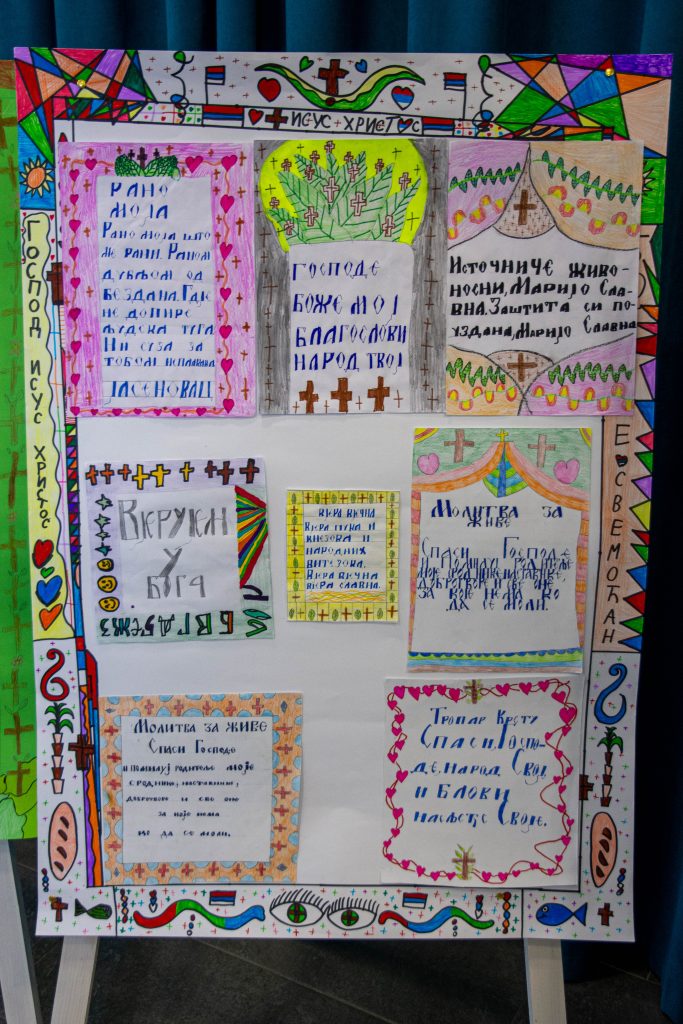 ИСУС ХРИСТОС
ГОСПОД ИСУС ХРИСТОС
РАНО
МОЈА
РАНО МОЈА ШТО
МЕ РАНИ. РАНОМ
ДУБЉОМ ОД
БЕЗДАНА. ГДЈЕ
НЕ ДОПИРЕ
ЉУДСКА ТУГА
НИ СУЗА ЗА
ТОБОМ ИСПЛАКАНА
ЈАСЕНОВАЦ
ГОСПОДЕ
БОЖЕ МОЈ
БЛАГОСЛОВИ
НАРОД ТВОЈ
ИСТОЧНИЧЕ ЖИВО-
НОСНИ, МАРИЈО СЛА-
ВНА. ЗАШТИТА СИ ПО-
УЗДАНА, МАРИЈО СЛАВНА
ВЈЕРУЈЕМ
У
БОГА
ВЈЕРА ВЈЕЧНА
ВЈЕРА ПУКА И
КНЕЗОВА И
НАРОДНИХ
ВИТЕЗОВА.
ВЈЕРА ВЈЕЧНА
ВЈЕРА СЛАВНА.
МОЛИТВА ЗА
ЖИВЕ
СПАСИ ГОСПОДЕ
И ПОМИЛУЈ РОДИТЕЉЕ
МОЈЕ, СРОДНИКЕ, НАСТАВНИКЕ,
ДОБРОТВОРЕ И СВЕ ОНЕ
ЗА КОЈЕ НЕМА КО
ДА СЕ МОЛИ.
СВЕМОЋАН
МОЛИТВА ЗА ЖИВЕ
СПАСИ ГОСПОДЕ
И ПОМИЛУЈ РОДИТЕЉЕ МОЈЕ
СРОДНИКЕ, НАСТАВНИКЕ,
ДОБРОТВОРЕ И СВЕ ОНЕ
ЗА КОЈЕ НЕМА
КО ДА СЕ МОЛИ.
ТРОПАР КРСТУ
СПАСИ, ГОСПО-
ДЕ, НАРОД СВОЈ
И БЛОВИ
НАСЉЕЂЕ СВОЈЕ.